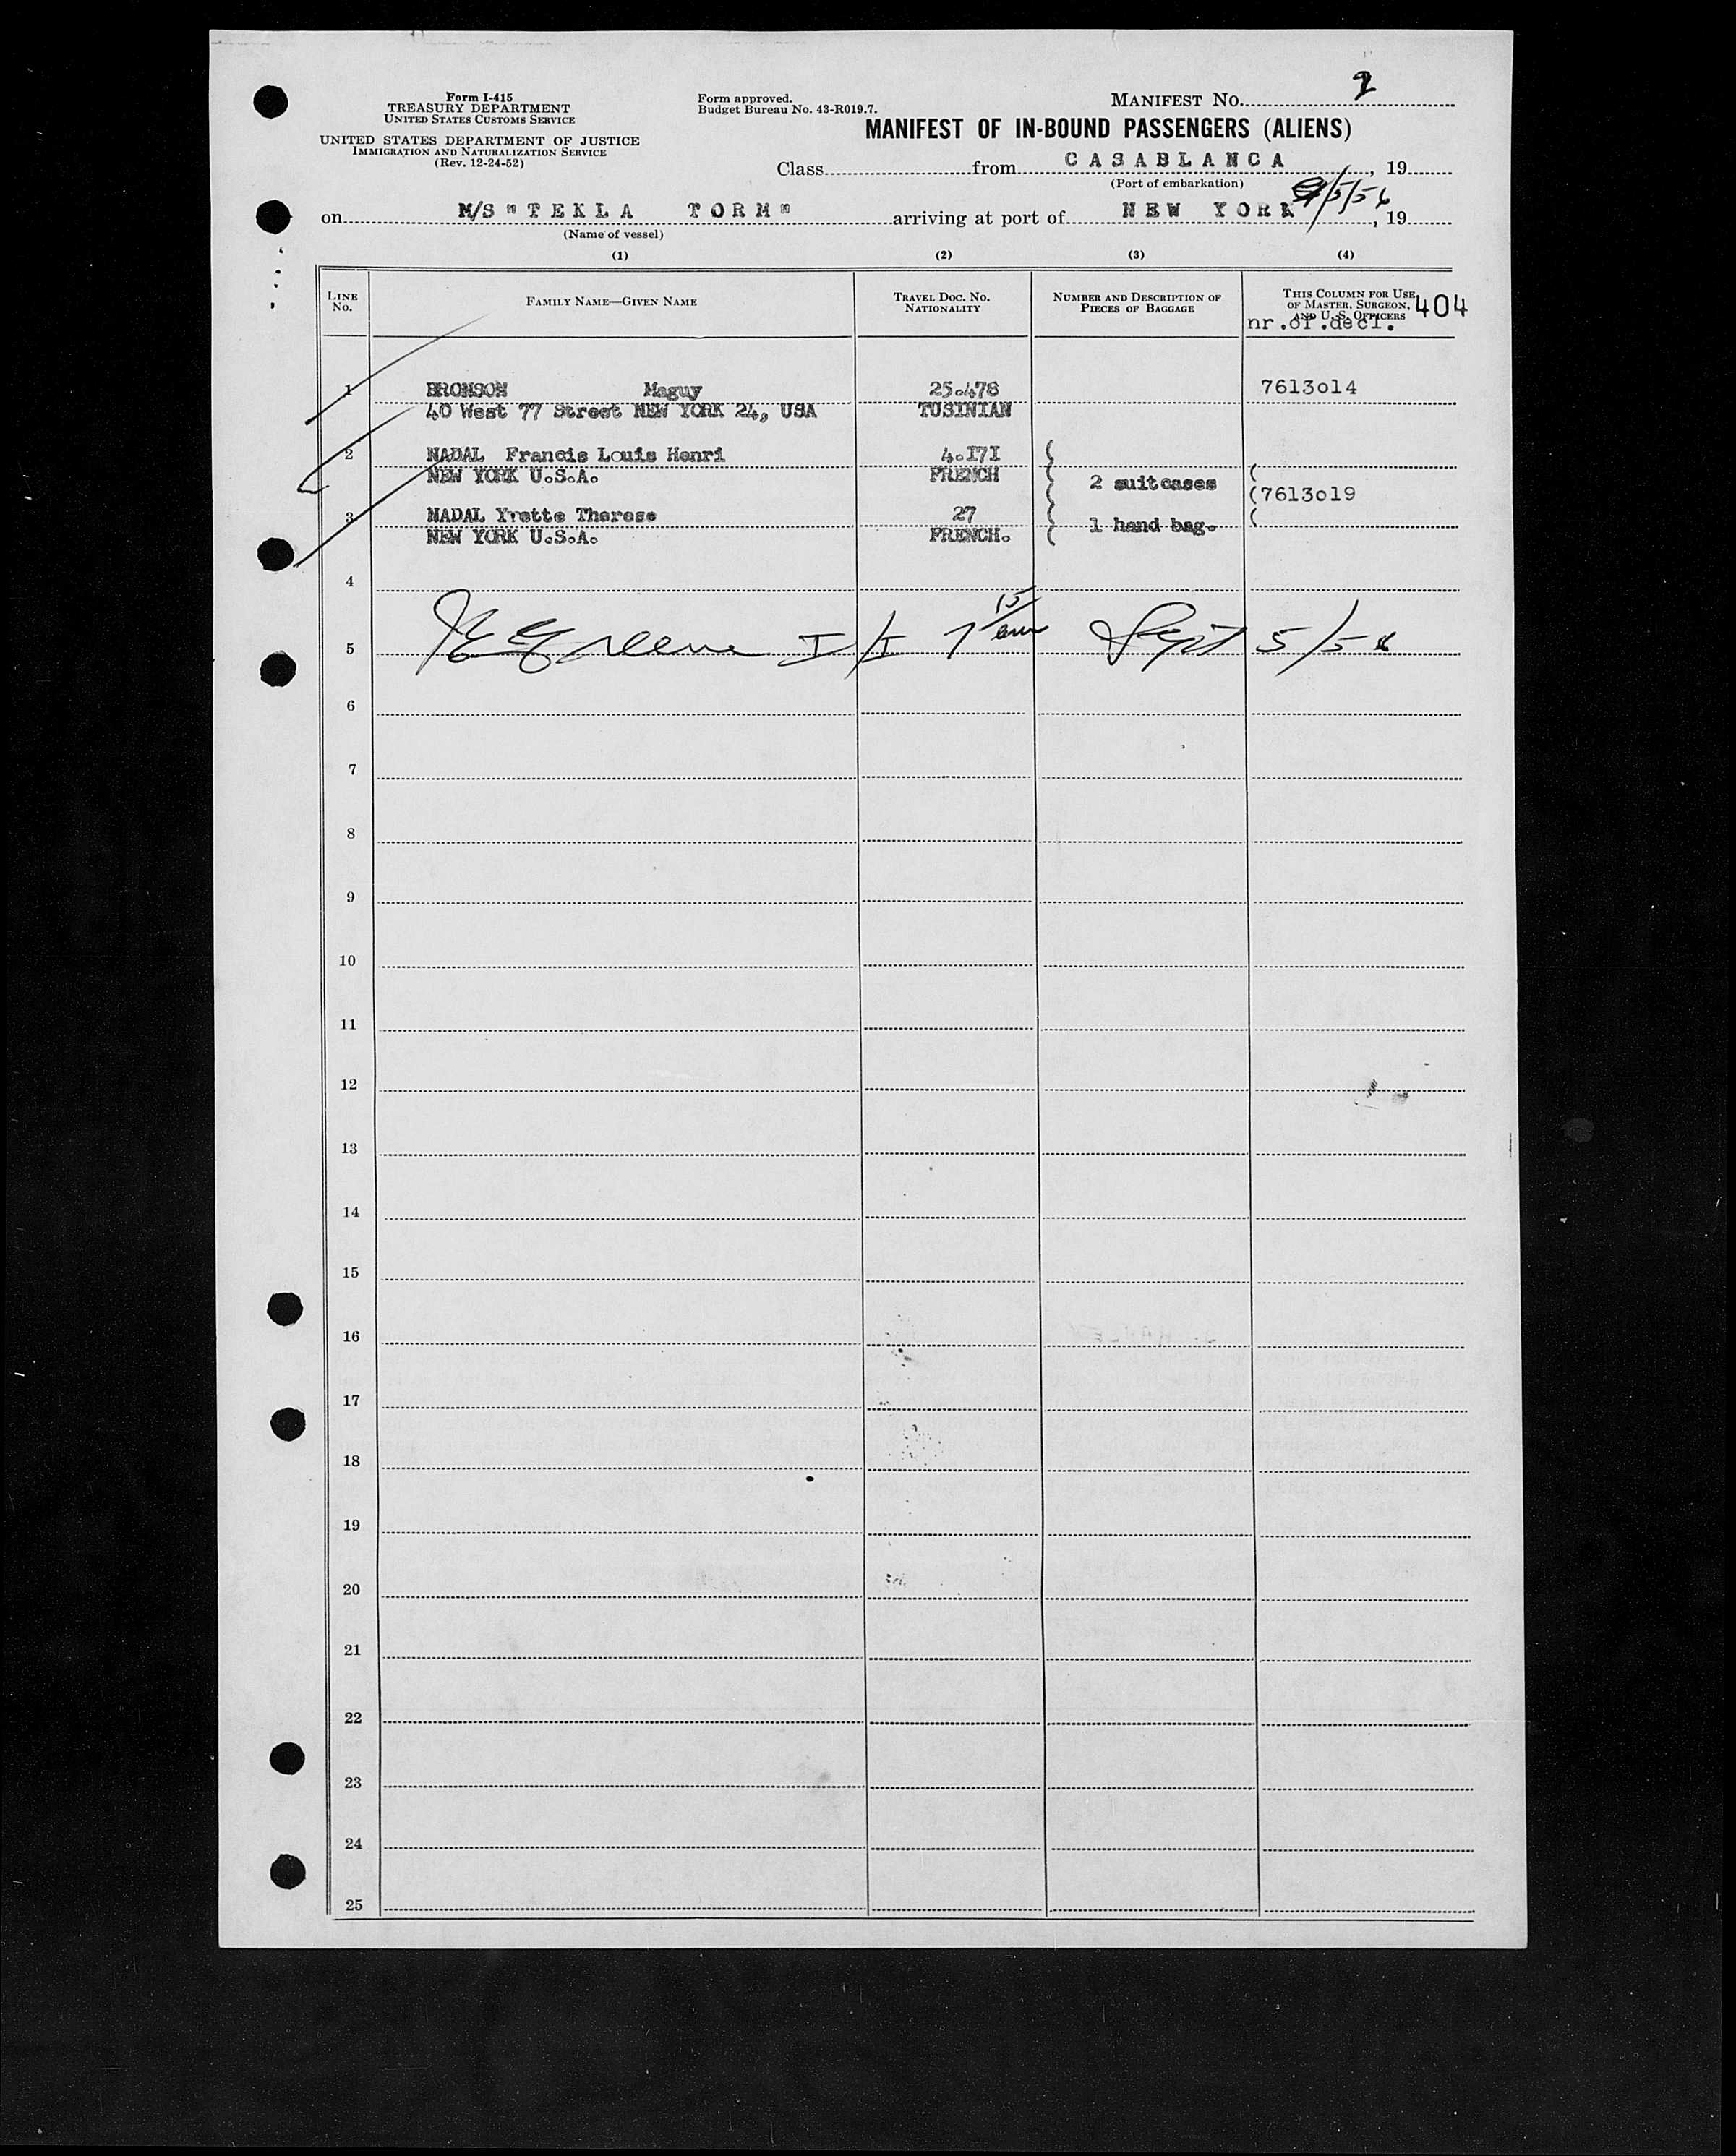 Form I-415
TREASURY DEPARTMENT
UNITED STATES CUSTOMS SERVICE
UNITED STATES DEPARTMENT OF JUSTICE
IMMIGRATION AND NATURALIZATION SERVICE
(Rev. 12-24-52)
Form approved.
Budget Bureau No. 43-R019.7.
MANIFEST NO. 2
MANIFEST OF IN-BOUND PASSENGERS (ALIENS)
Class from CASABLANCA, 19
(Port of embarkation)
on M/S "TEKLA TORM" arriving at port of NEW YORK 9/5/56, 19
(Name of vessel)
(1) (2) (3) (4)
LINE No. FAMILY NAME—GIVEN NAME TRAVEL DOC. NO. NATIONALITY NUMBER AND DESCRIPTION OF PIECES OF BAGGAGE THIS COLUMN FOR USE OF MASTER, SURGEON, AND U. S. OFFICERS 404
nr.of.decl.
1 BRONSON Maguy 25.478 7613o14
40 West 77 Street NEW YORK 24, USA TUSINIAN
2 NADAL Francis Louis Henri 4.I7I
NEW YORK U.S.A. FRENCH 2 suitcases (7613o19
3 NADAL Yvette Therese 27 1 hand bag.
NEW YORK U.S.A. FRENCH.
4
5 Greene I/I 7 15 am Sept 5/56
6
7
8
9
10
11
12
13
14
15
16
17
18
19
20
21
22
23
24
25